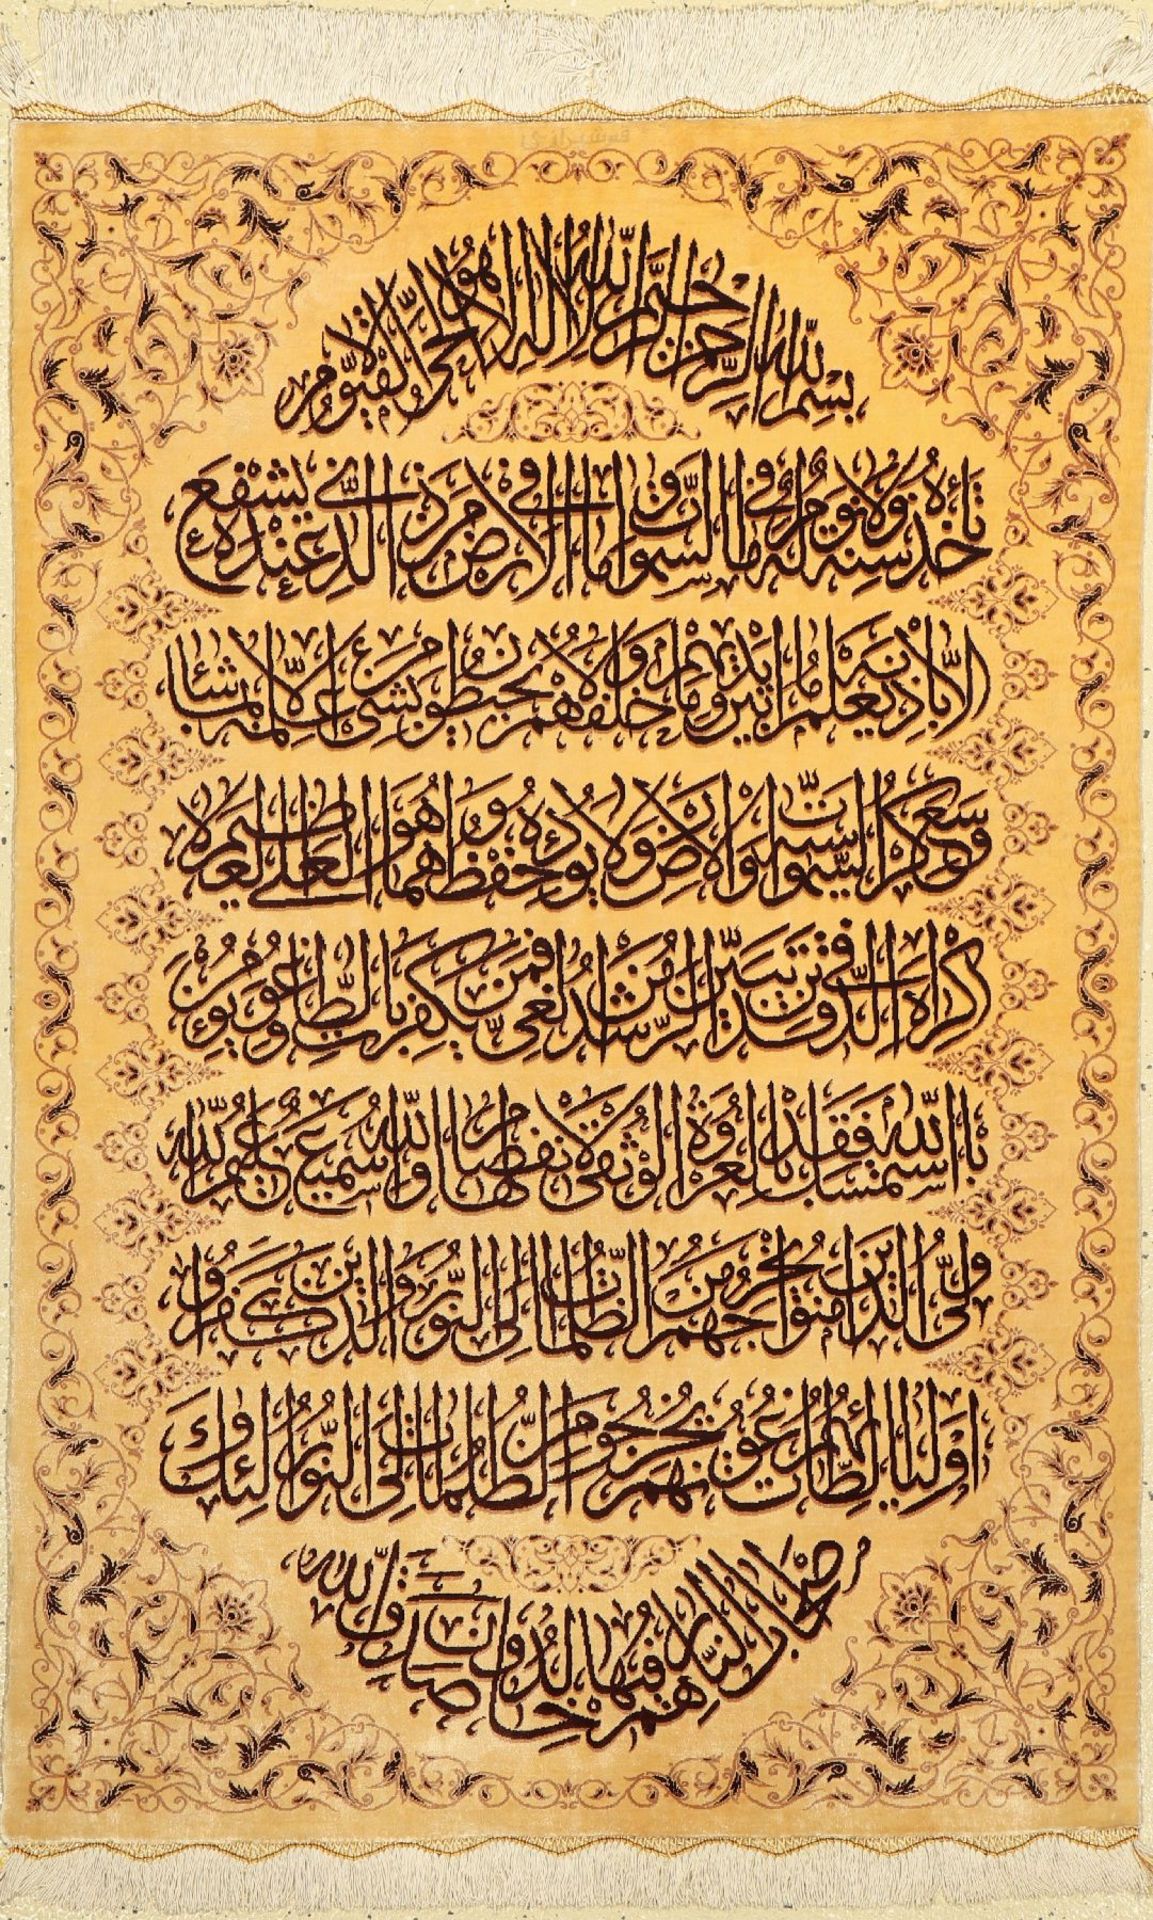 قم شیرازی
بسم الله الرحمن الرحيم الله لا اله الا هو الحي القيوم لا
تأخذه سنة ولا نوم له ما في السموات وما في الارض من ذا الذي يشفع عنده
الا باذنه يعلم ما بين ايديهم وما خلفهم ولا يحيطون بشيء من علمه الا بما شاء
وسع كرسيه السموات والارض ولا يؤده حفظهما وهو العلي العظيم لا
اكراه في الدين قد تبين الرشد من الغي فمن يكفر بالطاغوت ويؤمن
بالله فقد استمسك بالعروة الوثقى لا انفصام لها والله سميع عليم الله
ولي الذين امنوا يخرجهم من الظلمات الى النور والذين كفروا
اولياؤهم الطاغوت يخرجونهم من النور الى الظلمات اولئك
اصحاب النار هم فيها خالدون صدق الله